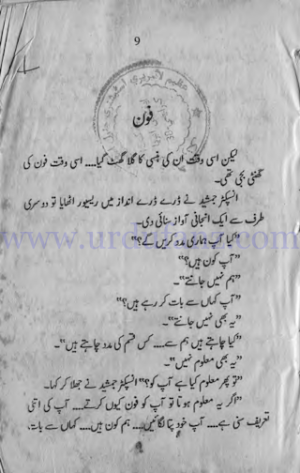 9
فون
لیکن اسی وقت ان کی ہنسی کا گلا گھٹ گیا.... اسی وقت فون کی
گھنٹی بجی تھی۔
انسپکٹر جمشید نے ڈرے ڈرے انداز میں ریسیور اٹھایا تو دوسری
طرف سے ایک انجانی آواز سنائی دی۔
"کیا آپ ہماری مدد کریں گے؟"
"آپ کون ہیں؟"
"ہم نہیں جانتے"۔
"آپ کہاں سے بات کر رہے ہیں؟"
"یہ بھی نہیں جانتے"۔
"کیا چاہتے ہیں ہم سے.... کس قسم کی مدد چاہتے ہیں"۔
"یہ بھی معلوم نہیں"۔
"تو پھر معلوم کیا ہے آپ کو؟" انسپکٹر جمشید نے جھلا کر کہا۔
"اگر یہ معلوم ہوتا تو آپ کو فون کیوں کرتے.... آپ کی اتنی
تعریف سنی ہے.... آپ خود پتا لگائیں.... ہم کون ہیں.... کہاں سے بات،